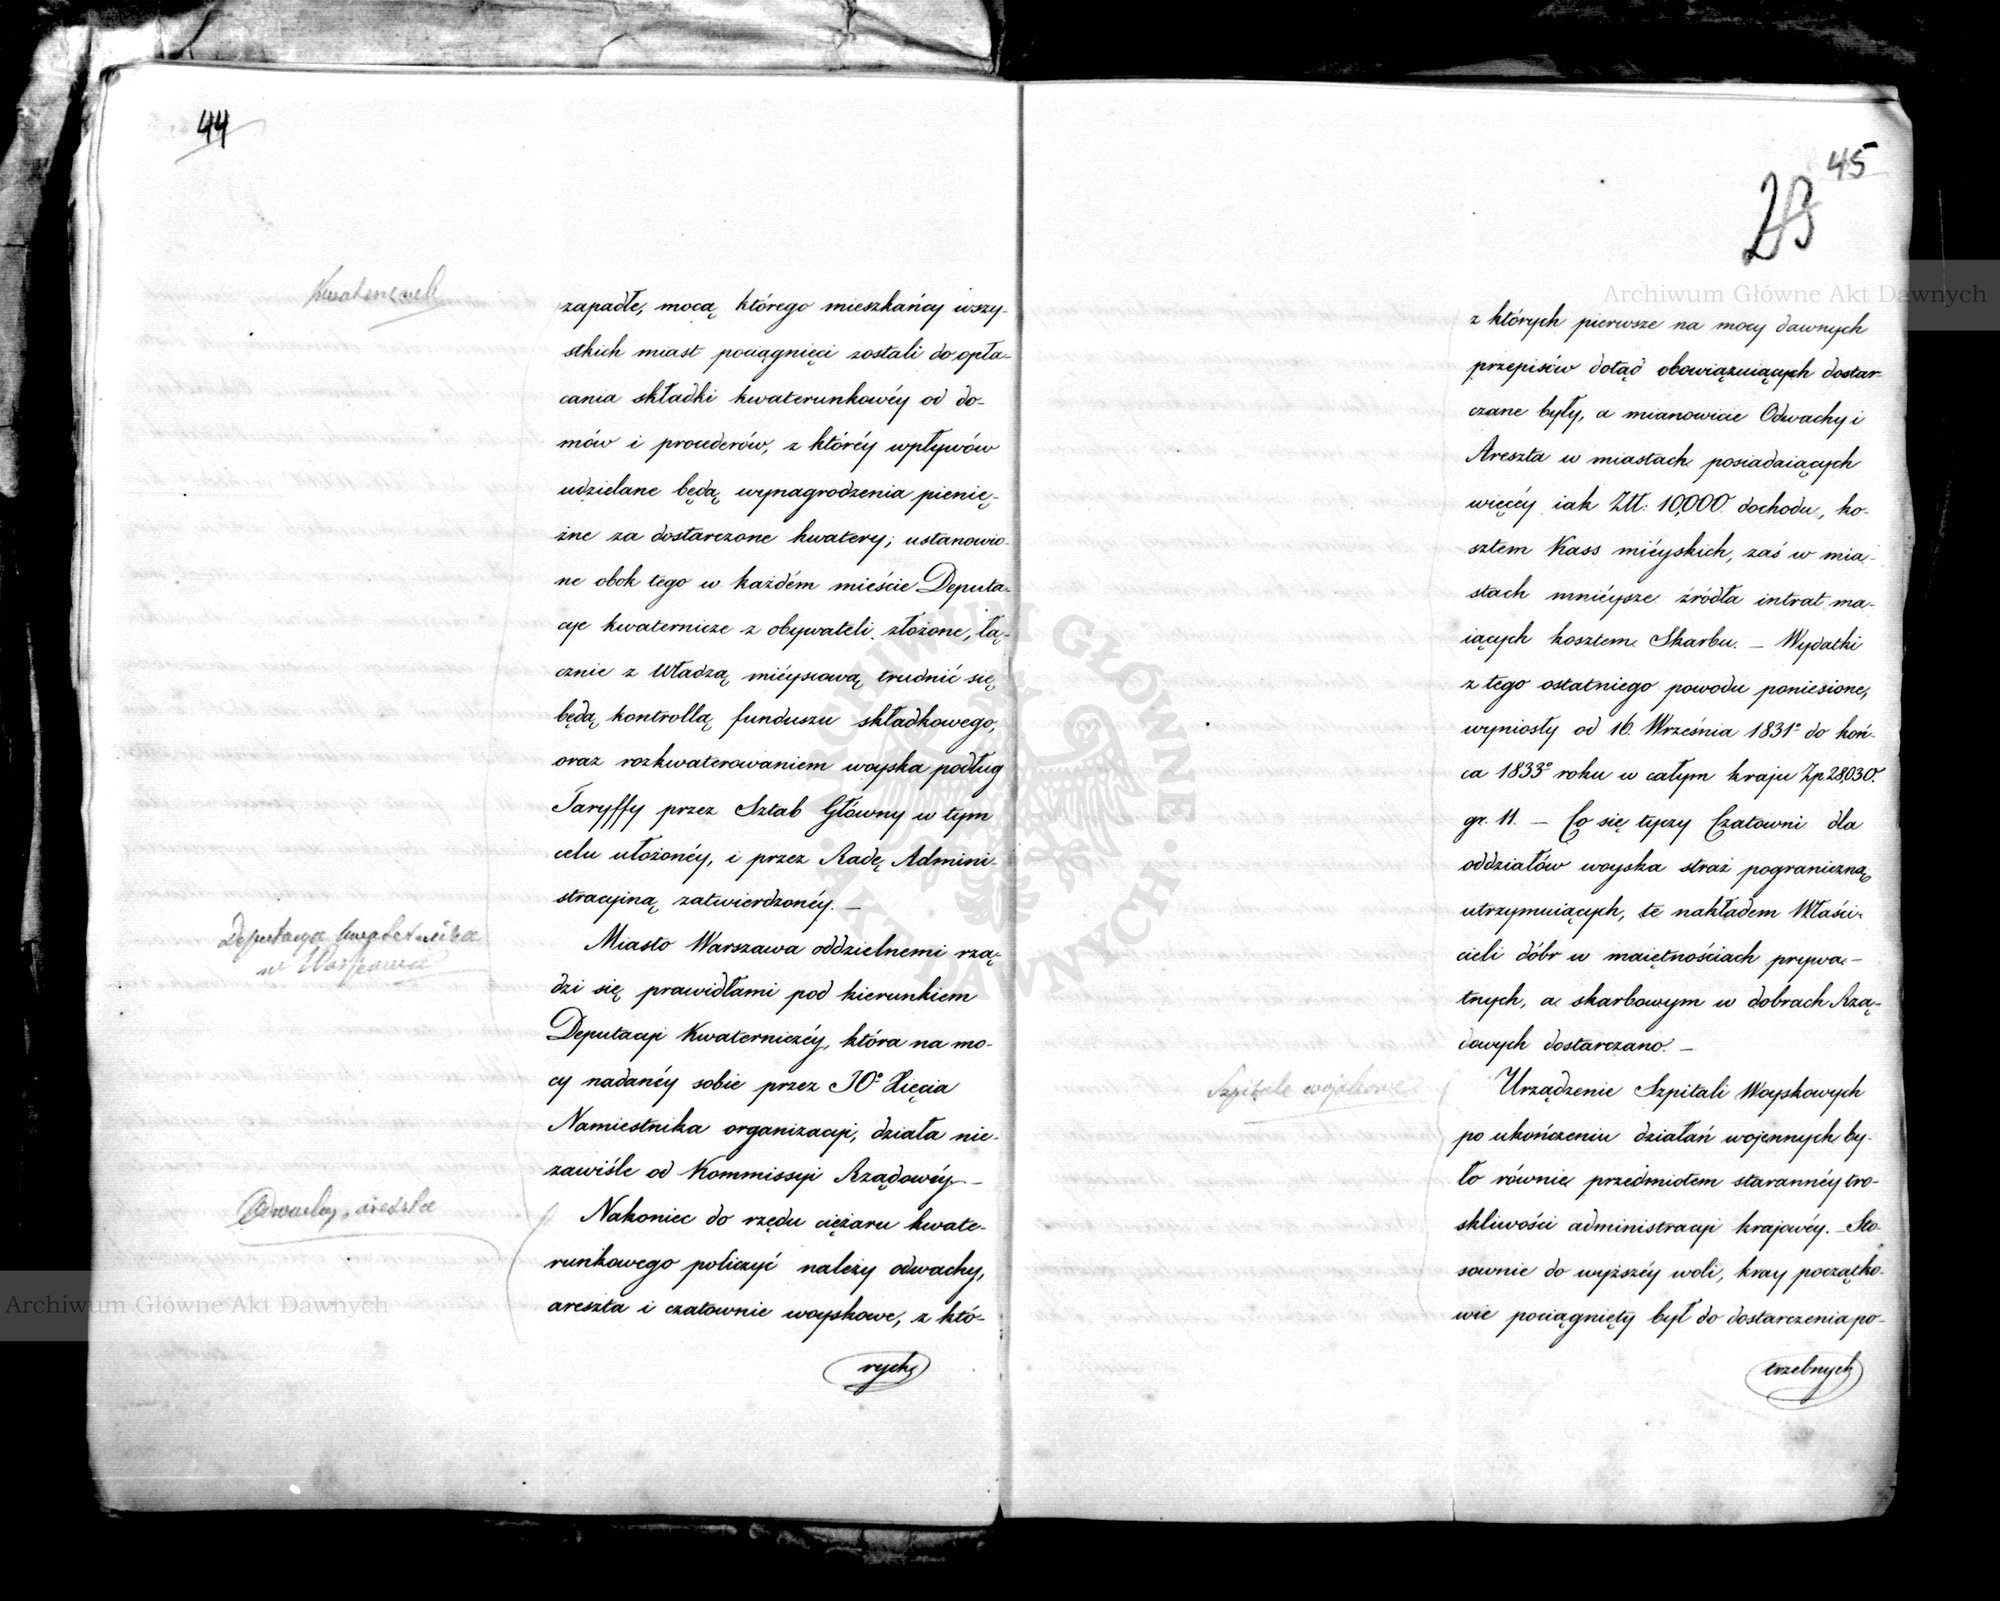 44
Kwaterunek
zapadłe, mocą którego mieszkańcy wszy-
stkich miast pociągnięci zostali do opła-
cania składki kwaterunkowéy od do-
mów i procederów, z któréy wpływów
udzielane będą wynagrodzenia pienię-
żne za dostarczone kwatery; ustanowio-
ne obok tego w każdém mieście Deputa-
cye kwaternicze z obywateli złożone, łą-
cznie z Władzą mieyscową trudnić się
będą kontrollą funduszu składkowego,
oraz rozkwaterowaniem woyska podług
Taryffy przez Sztab Główny w tym
celu ułożonéy, i przez Radę Admini-
stracyiną zatwierdzonéy. —
Deputacya kwaternicza
w Warszawie
Miasto Warszawa oddzielnemi rzą-
dzi się prawidłami pod kierunkiem
Deputacyi Kwaterniczéy, która na mo-
cy nadanéy sobie przez JO° Xięcia
Namiestnika organizacyi, działa nie-
zawiśle od Kommissyi Rządowéy —
Odwachy, areszta
Nakoniec do rzędu ciężaru kwate-
runkowego policzyć należy odwachy,
areszta i czatownie woyskowe, z któ-
rych
45
23
z których pierwsze na mocy dawnych
przepisów dotąd obowiązuiących dostar-
czane były, a mianowicie Odwachy i
Areszta w miastach posiadaiących
więcéy iak Złł: 10,000 dochodu, ko-
sztem Kass miéyskich, zaś w mia-
stach mnieysze źródła intrat ma-
iących kosztem Skarbu. — Wydatki
z tego ostatniego powodu poniesione,
wyniosły od 16 Września 1831° do koń-
ca 1833° roku w całym kraju Zp 28,030.
gr. 11. — Co się tyczy Czatowni dla
oddziałów woyska straż pograniczną
utrzymuiących, te nakładem Właści-
cieli dóbr w maiętnościach prywa-
tnych, a skarbowym w dobrach Rzą-
dowych dostarczano. —
Szpitale wojskowe
Urządzenie Szpitali Woyskowych
po ukończeniu działań wojennych by-
ło równie przedmiotem starannéy tro-
skliwości administracyi krajowéy. — Sto-
sownie do wyższéy woli, kray początko-
wie pociągnięty był do dostarczenia po-
trzebnych
Archiwum Główne Akt Dawnych
Archiwum Główne Akt Dawnych
ARCHIWUM GŁÓWNE AKT DAWNYCH